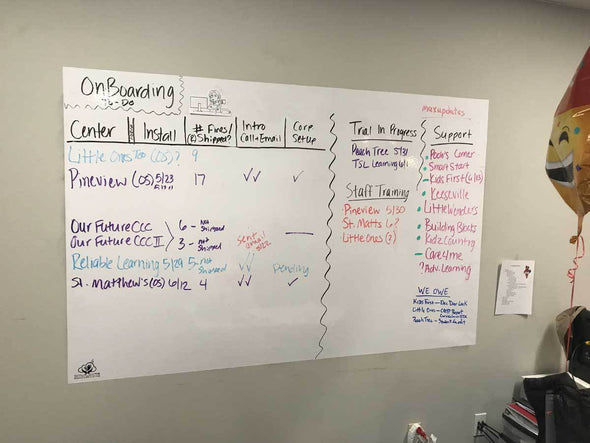 OnBoarding
To-Do
Center
Install
# Fires/
Shipped?
Intro
Call+Email
Corp
Setup
Little Ones Too (OS)? 9
Pineview (OS) 5/23 17 ✓✓ ✓
Our Future CCC 6 - Not Shipped
Our Future CCC II 3 - not Shipped
sent email 5/22
Reliable Learning 5/29 5 - not Shipped ✓✓ pending
St. Matthew's (OS) 6/12 4 ✓✓ ✓
Trial In Progress
Peach Tree 5/31
TSL Learning 6/1
Staff Training
Pineview 5/30
St. Matts 6?
Little Ones (?)
#maxupdates
Support
Pooh's Corner
Smart Start
Kids First
Keeseville
Little Wonders
Building Blocks
Kidz Country
Care4me
? Adv. Learning
WE OWE
Kids First
Little Ones
Peach Tree